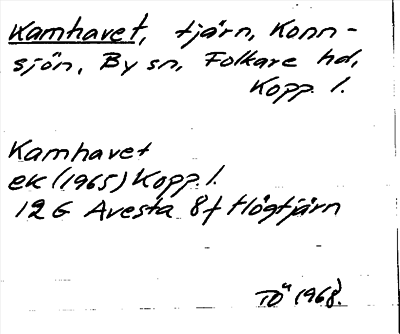 Kamhavet, tjärn, Konn-
sjön, By sn, Folkare hd,
Kopp. l.
Kamhavet
ek (1965) Kopp. l.
12 G Avesta 8f Högtjärn
TÖ 1968.